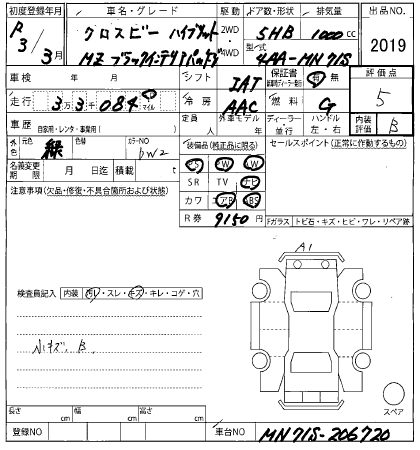 初度登録年月 車名・グレード 駆動 ドア数・形状 排気量 出品NO.
R3/3月 クロスビー ハイブリッド 2WD 5HB 1000cc 2019
MZ 4WD 型式 4AA-MN71S
車検 年 月 シフト IAT 保証書 有 無 評価点
走行 3万3千084 km マイル 冷房 AAC 燃料 G 5
車歴 自家用・レンタ・事業用( ) 定員 人 外車モデル 年 ディーラー・並行 ハンドル 左・右 内装評価 B
外色 元色 緑 色替 カラーNO 装備品(純正品に限る) セールスポイント(正常に作動するもの)
名義変更期限 月 日迄 積載 t PS PW AW
注意事項(欠品・修復・不具合箇所および状態) SR TV ナビ
カワ エアB ABS
R券 9150円 Fガラス:トビ石・キズ・ヒビ・ワレ・リペア跡
A1
検査員記入 内装 汚レ・スレ・キズ・キレ・コゲ・穴
小キズ、B、
スペア
長さ cm 幅 cm 高さ cm
登録NO 車台NO MN71S-206720